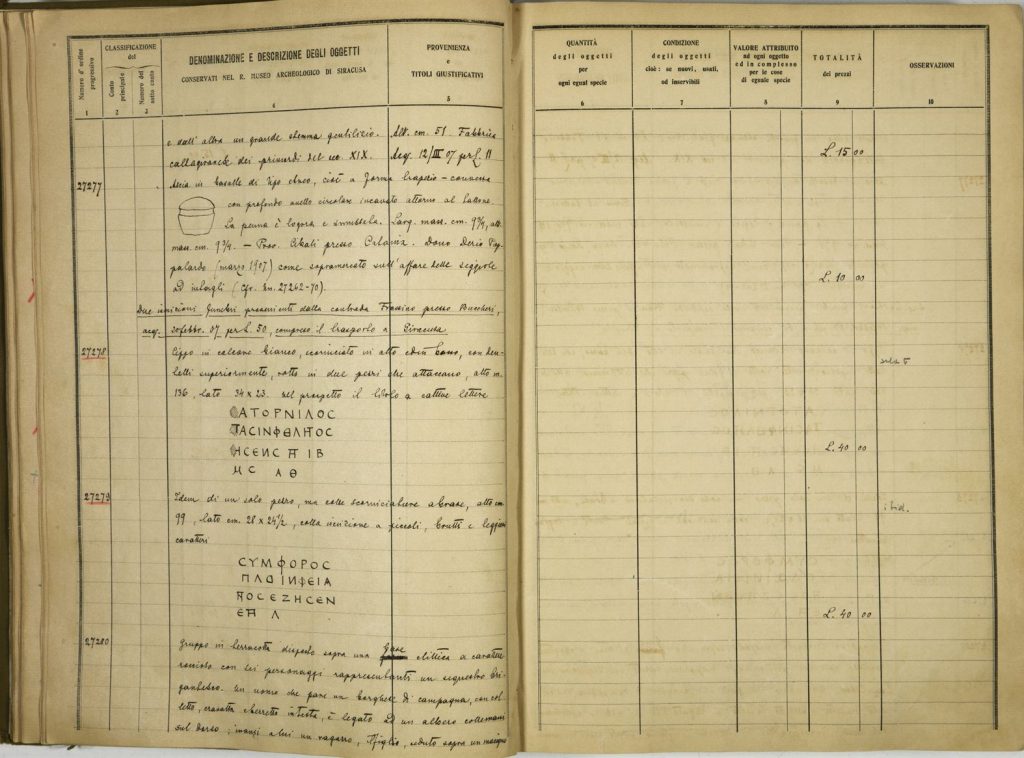 Numero d'ordine progressivo
CLASSIFICAZIONE
del
Conto principale
Numero del sotto conto
DENOMINAZIONE E DESCRIZIONE DEGLI OGGETTI
CONSERVATI NEL R. MUSEO ARCHEOLOGICO DI SIRACUSA
PROVENIENZA
e
TITOLI GIUSTIFICATIVI
1 2 3 4 5
e dall'altra un grande stemma gentilizio. Alt. cm. 51. Fabbrica
dei primordi del sec. XIX. Acq. 12/III 07 per L. 11
27277
Ascia in basalto di tipo cioè a forma
con profondo anello circolare incavato attorno al tallone.
La penna è logora e Larg. mass. cm. 9¾, alt.
mass. cm. 9¾. — Prov. Cibali presso Catania. Dono Pap-
palardo (marzo 1907) come sull'affare delle
ed intagli (Cfr. 27262-70).
Due iscrizioni funebri provenienti dalla contrada Frassino presso Buccheri,
acq. febbr. 07 per L. 50, compreso il trasporto a Siracusa
27278
Cippo in calcare bianco, scorniciato in alto ed in basso, con den-
telli superiormente, rotto in due pezzi che attaccano, alto m.
136, lato 34 x 23. nel prospetto il titolo a cattive lettere
ϹΑΤΟΡΝΙΛΟϹ
ΤΑϹΙΝΦΘΛΙΤΟϹ
ΗϹΕΝϹ Π ΙΒ
Μ Ϲ Α Θ
27279
Idem di un solo pezzo, ma colle scorniciature abrase, alto cm.
99, lato cm. 28 x 24½, colla iscrizione a piccoli, brutti e
caratteri
ϹΥΜΦΟΡΟϹ
ΠΛΟΙΝΦΕΙΑ
ΠΟϹΕΖΗϹΕΝ
ΕΠ Λ
27280
Gruppo in terracotta disposto sopra una base ellittica a carattere
roccioso con sei personaggi rappresentanti un sequestro bri-
gantesco. Un uomo che pare un borghese di campagna, con col-
letto, cravatta e berretto in testa, è legato ad un albero colle mani
sul dorso; innanzi a lui un ragazzo, figlio, seduto sopra un macigno
QUANTITÀ
degli oggetti
per
ogni egual specie
CONDIZIONE
degli oggetti
cioè: se nuovi, usati,
od inservibili
VALORE ATTRIBUITO
ad ogni oggetto
ed in complesso
per le cose
di eguale specie
TOTALITÀ
dei prezzi
OSSERVAZIONI
6 7 8 9 10
L. 15 00
L. 10 00
L. 40 00
ibid.
L. 40 00